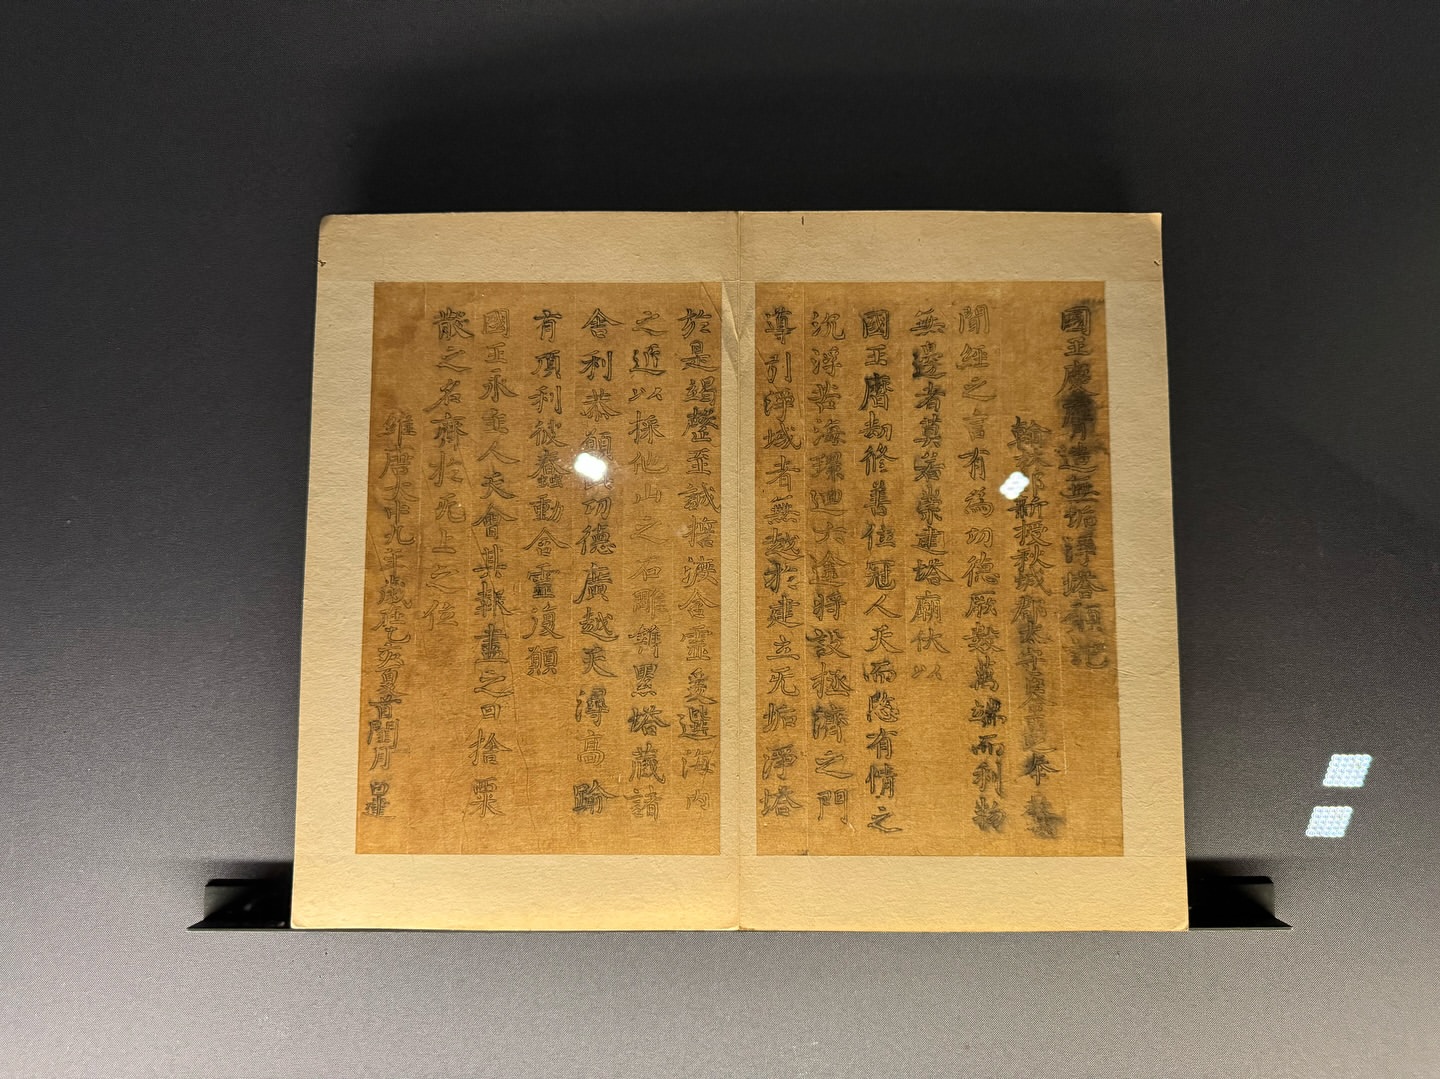 國王慶膺造無垢淨塔願記
翰林郎新授秋城郡太守臣金立之奉 敎撰
聞經之言有為功德厥數萬端而利物
無邊者莫若崇建塔廟伏以
國王曆劫修善位冠人天而愍有情之
沉浮苦海環迴六途將設拯濟之門
導引淨域者無越於建立无垢淨塔
於是竭罄至誠擔渡含靈爰選海內
之匠以採他山之石雕鐫累塔藏諸
舍利恭願功德廣越天潯高踰
有頂利彼蠢動含靈復願
國王永主人天會其報盡之日捨粟
散之名齊於无上之位
維唐大中九年歲在乙亥夏首閏月日建